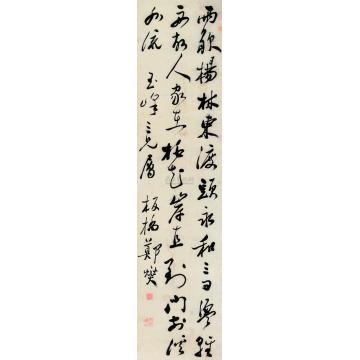 雨歇楊林東渡頭永和三日盪輕
舟故人家在桃花岸直到門前溪
水流 玉峰兄屬 板橋鄭燮